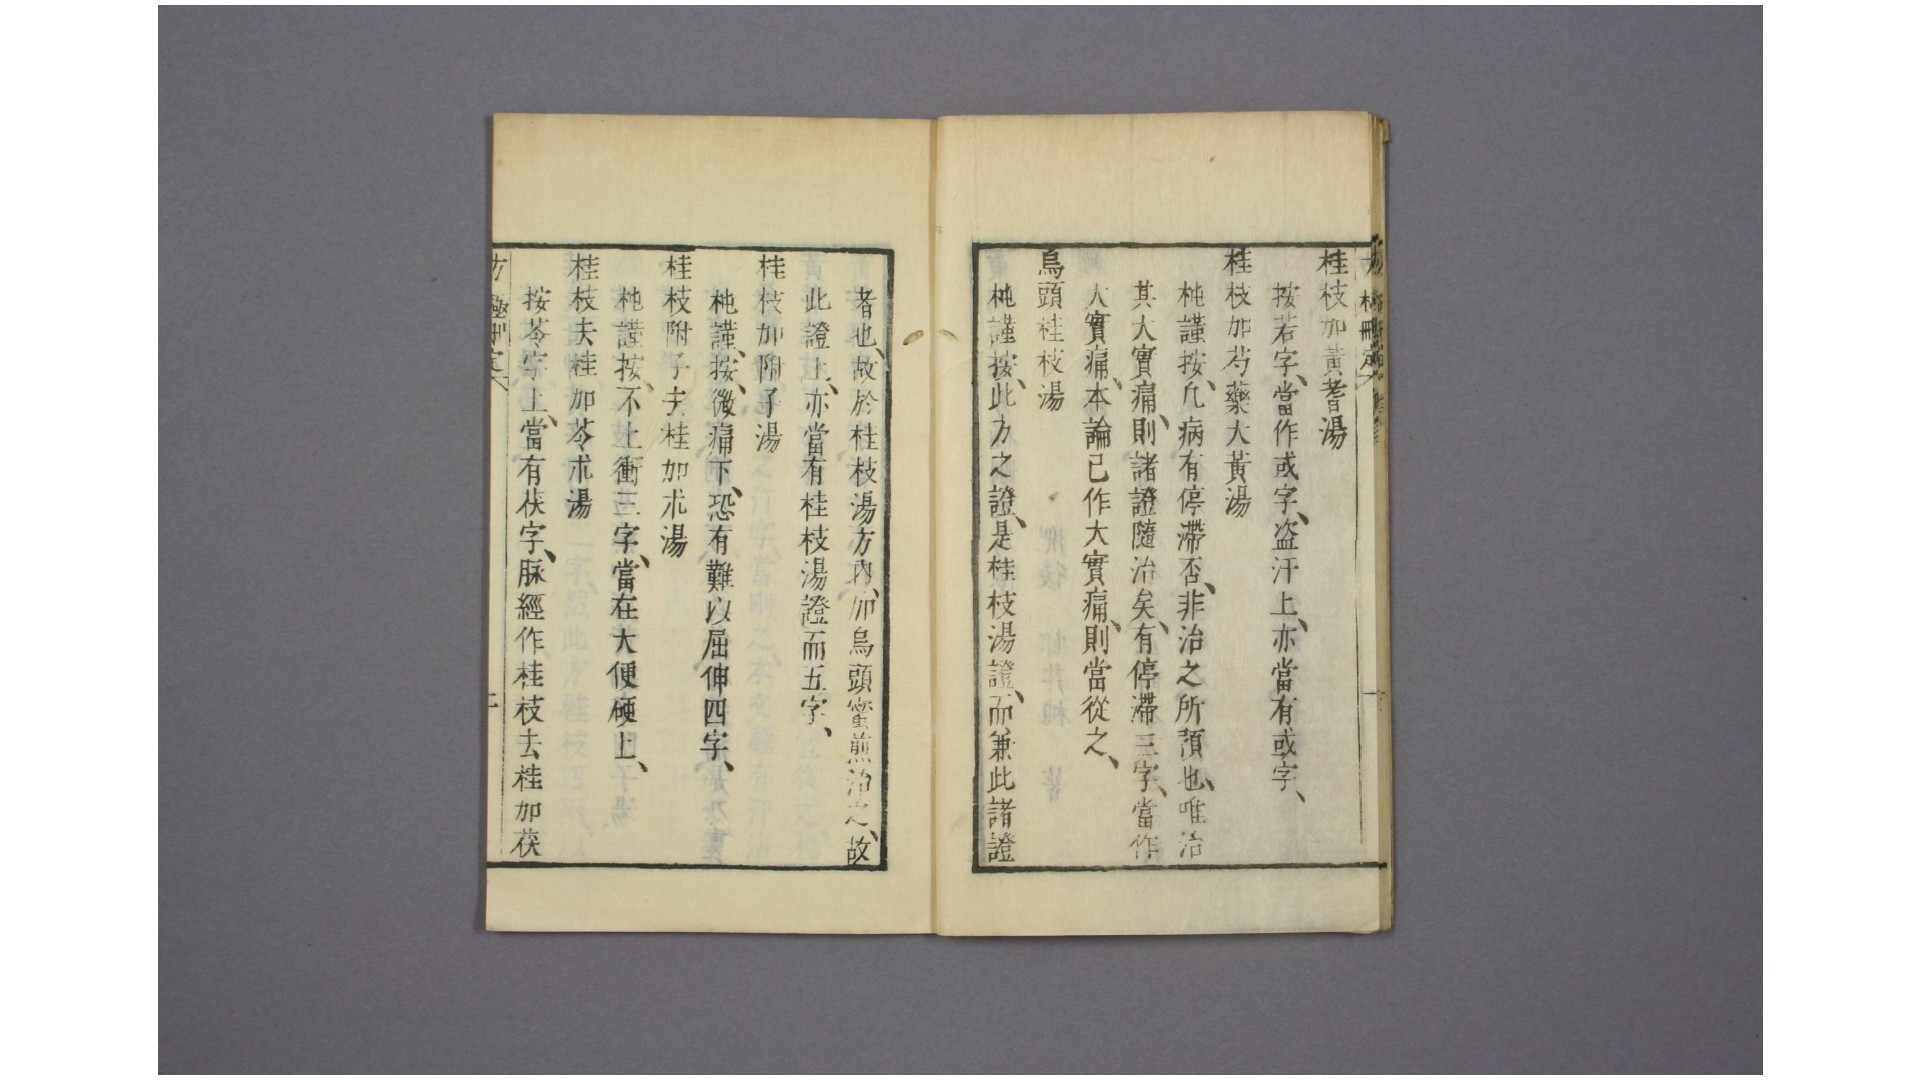 桂枝加黃耆湯
按若字、當作或字、盗汗上、亦當有或字、
桂枝加芍藥大黃湯
杶謹按、凢病有停滯否、非治之所預也、唯治
其大實痛、則諸證隨治矣、有停滯三字、當作
大實痛、本論已作大實痛、則當從之、
烏頭桂枝湯
杶謹按、此方之證、是桂枝湯證、而兼此諸證
者也、故於桂枝湯方內、加烏頭蜜煎治之、故
此證上、亦當有桂枝湯證而五字、
桂枝加附子湯
杶謹、按、微痛下、恐有難以屈伸四字、
桂枝附子去桂加朮湯
杶謹按、不上衝三字、當在大便硬上、
桂枝去桂加苓朮湯
按苓字上、當有茯字、脉經作桂枝去桂加茯
方極刪定
二